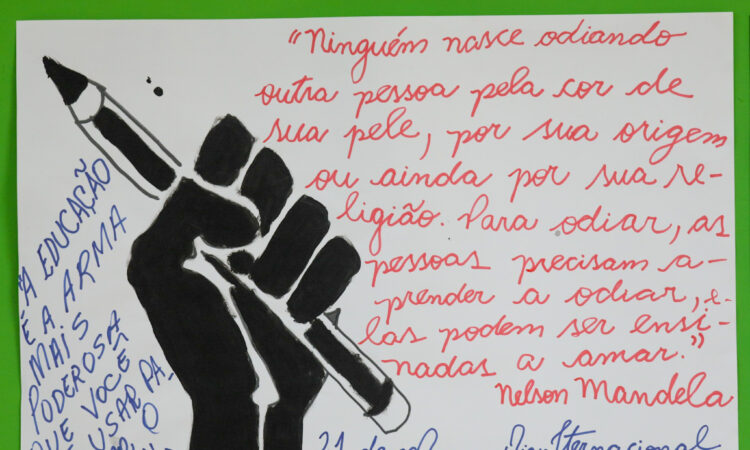 “Ninguém nasce odiando
outra pessoa pela cor de
sua pele, por sua origem
ou ainda por sua re-
ligião. Para odiar, as
pessoas precisam a-
prender a odiar, e-
las podem ser ensi-
nadas a amar.”
Nelson Mandela
"A EDUCAÇÃO
É A ARMA
MAIS
PODEROSA
QUE VOCÊ
USAR PA-
O
21 de Dia Iternacional